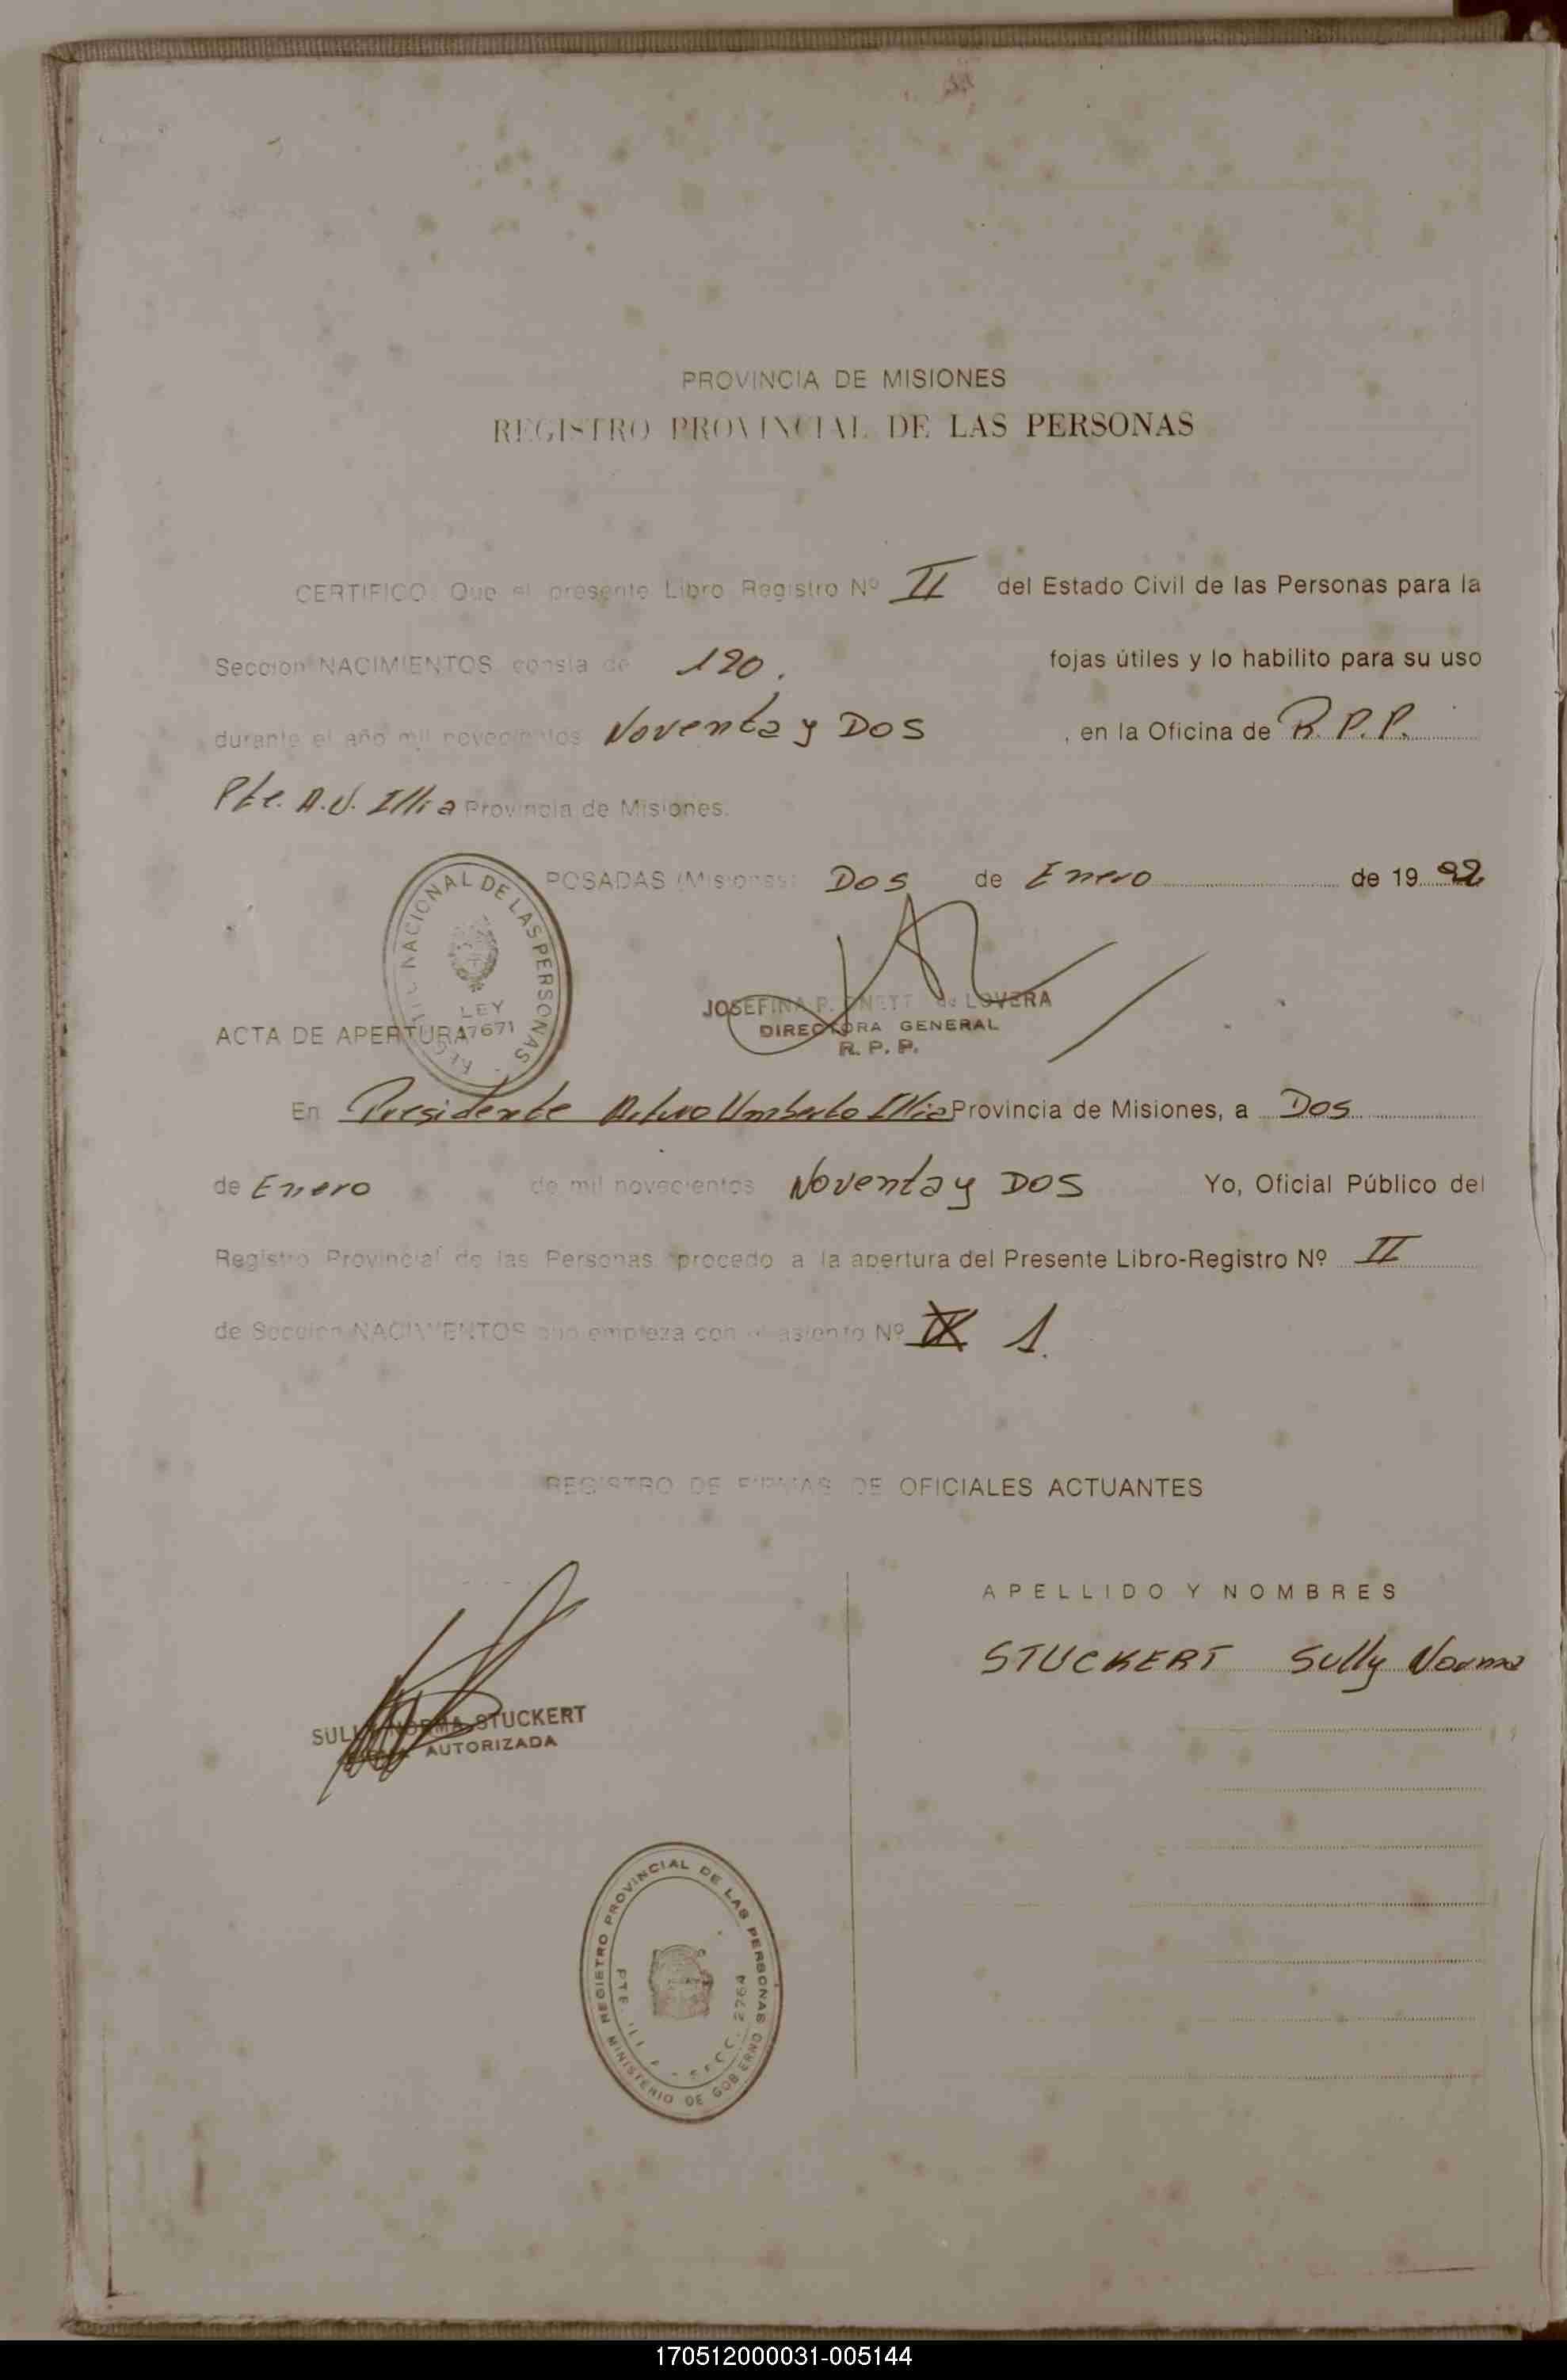 PROVINCIA DE MISIONES
REGISTRO PROVINCIAL DE LAS PERSONAS
CERTIFICO: Que el presente Libro Registro Nº II del Estado Civil de las Personas para la
Sección NACIMIENTOS consta de 190. fojas útiles y lo habilito para su uso
durante el año mil novecientos Noventa y Dos, en la Oficina de R.P.P.
Pte. A.U. Illia Provincia de Misiones.
POSADAS (Misiones) Dos de Enero de 1992
REG. NACIONAL DE LAS PERSONAS
LEY
17671
JOSEFINA P. de LOVERA
DIRECTORA GENERAL
R. P. P.
ACTA DE APERTURA
En Presidente Arturo Umberto Illia Provincia de Misiones, a Dos
de Enero de mil novecientos Noventa y Dos Yo, Oficial Público del
Registro Provincial de las Personas procedo a la apertura del Presente Libro-Registro Nº II
de Sección NACIMIENTOS que empieza con el asiento Nº 1.
REGISTRO DE FIRMAS DE OFICIALES ACTUANTES
APELLIDO Y NOMBRES
STUCKERT Sully Norma
SULLY NORMA STUCKERT
AUTORIZADA
REGISTRO PROVINCIAL DE LAS PERSONAS
MINISTERIO DE GOBIERNO
PTE. ILLIA - SECC. 2764
170512000031-005144